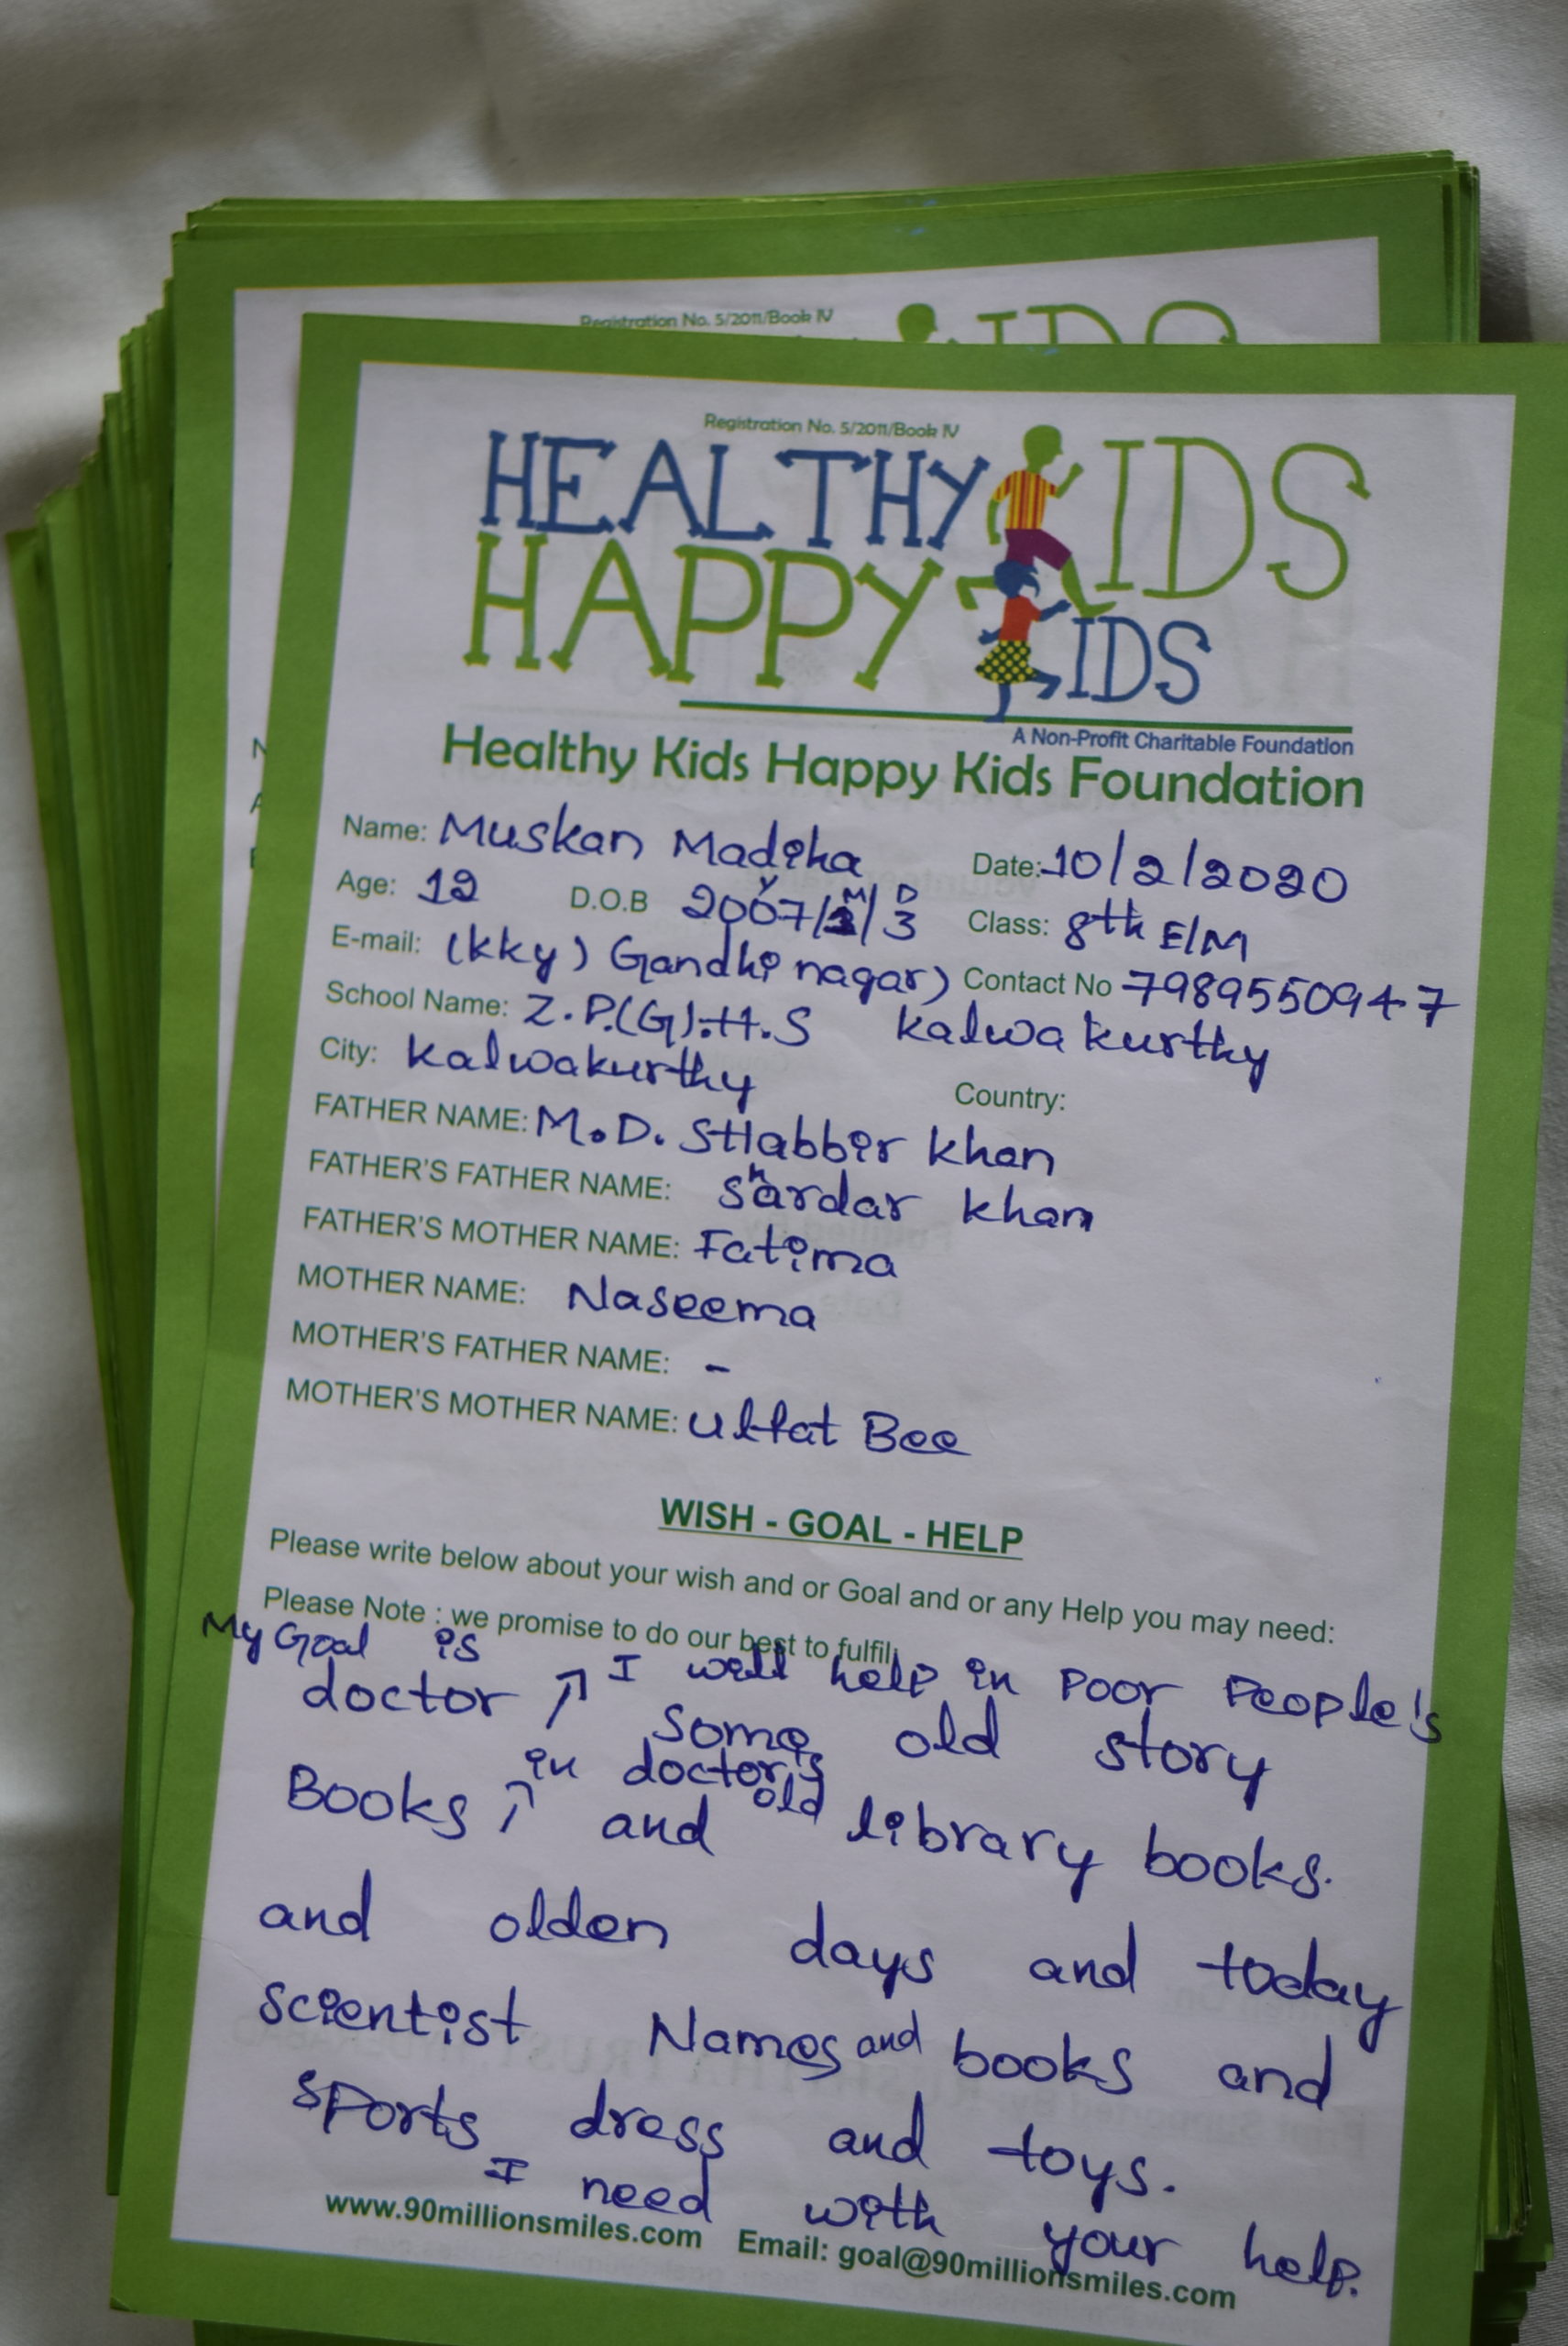 Registration No. 5/2011/Book IV
IDS
Registration No. 5/2011/Book IV
HEALTHY KIDS
HAPPY KIDS
A Non-Profit Charitable Foundation
Healthy Kids Happy Kids Foundation
Name: Muskan Madiha Date: 10/2/2020
Age: 12 D.O.B 2007/ /3 Class: 8th E/M
Y M D
E-mail: (kky) Gandhi nagar) Contact No 7989550947
School Name: Z.P.(G).H.S kalwakurthy
City: kalwakurthy Country:
FATHER NAME: M.D. SHabbir khan
FATHER'S FATHER NAME: Sardar khan
FATHER'S MOTHER NAME: Fatima
MOTHER NAME: Naseema
MOTHER'S FATHER NAME: -
MOTHER'S MOTHER NAME: Ulfat Bee
WISH - GOAL - HELP
Please write below about your wish and or Goal and or any Help you may need:
Please Note : we promise to do our best to fulfil.
My Goal is
doctor ↗ I will help in Poor People's
some old story
in doctor's
Books ↗ and old library books.
and olden days and today
scientist Names and books and
sports dress and toys.
I need with your help.
www.90millionsmiles.com Email: goal@90millionsmiles.com